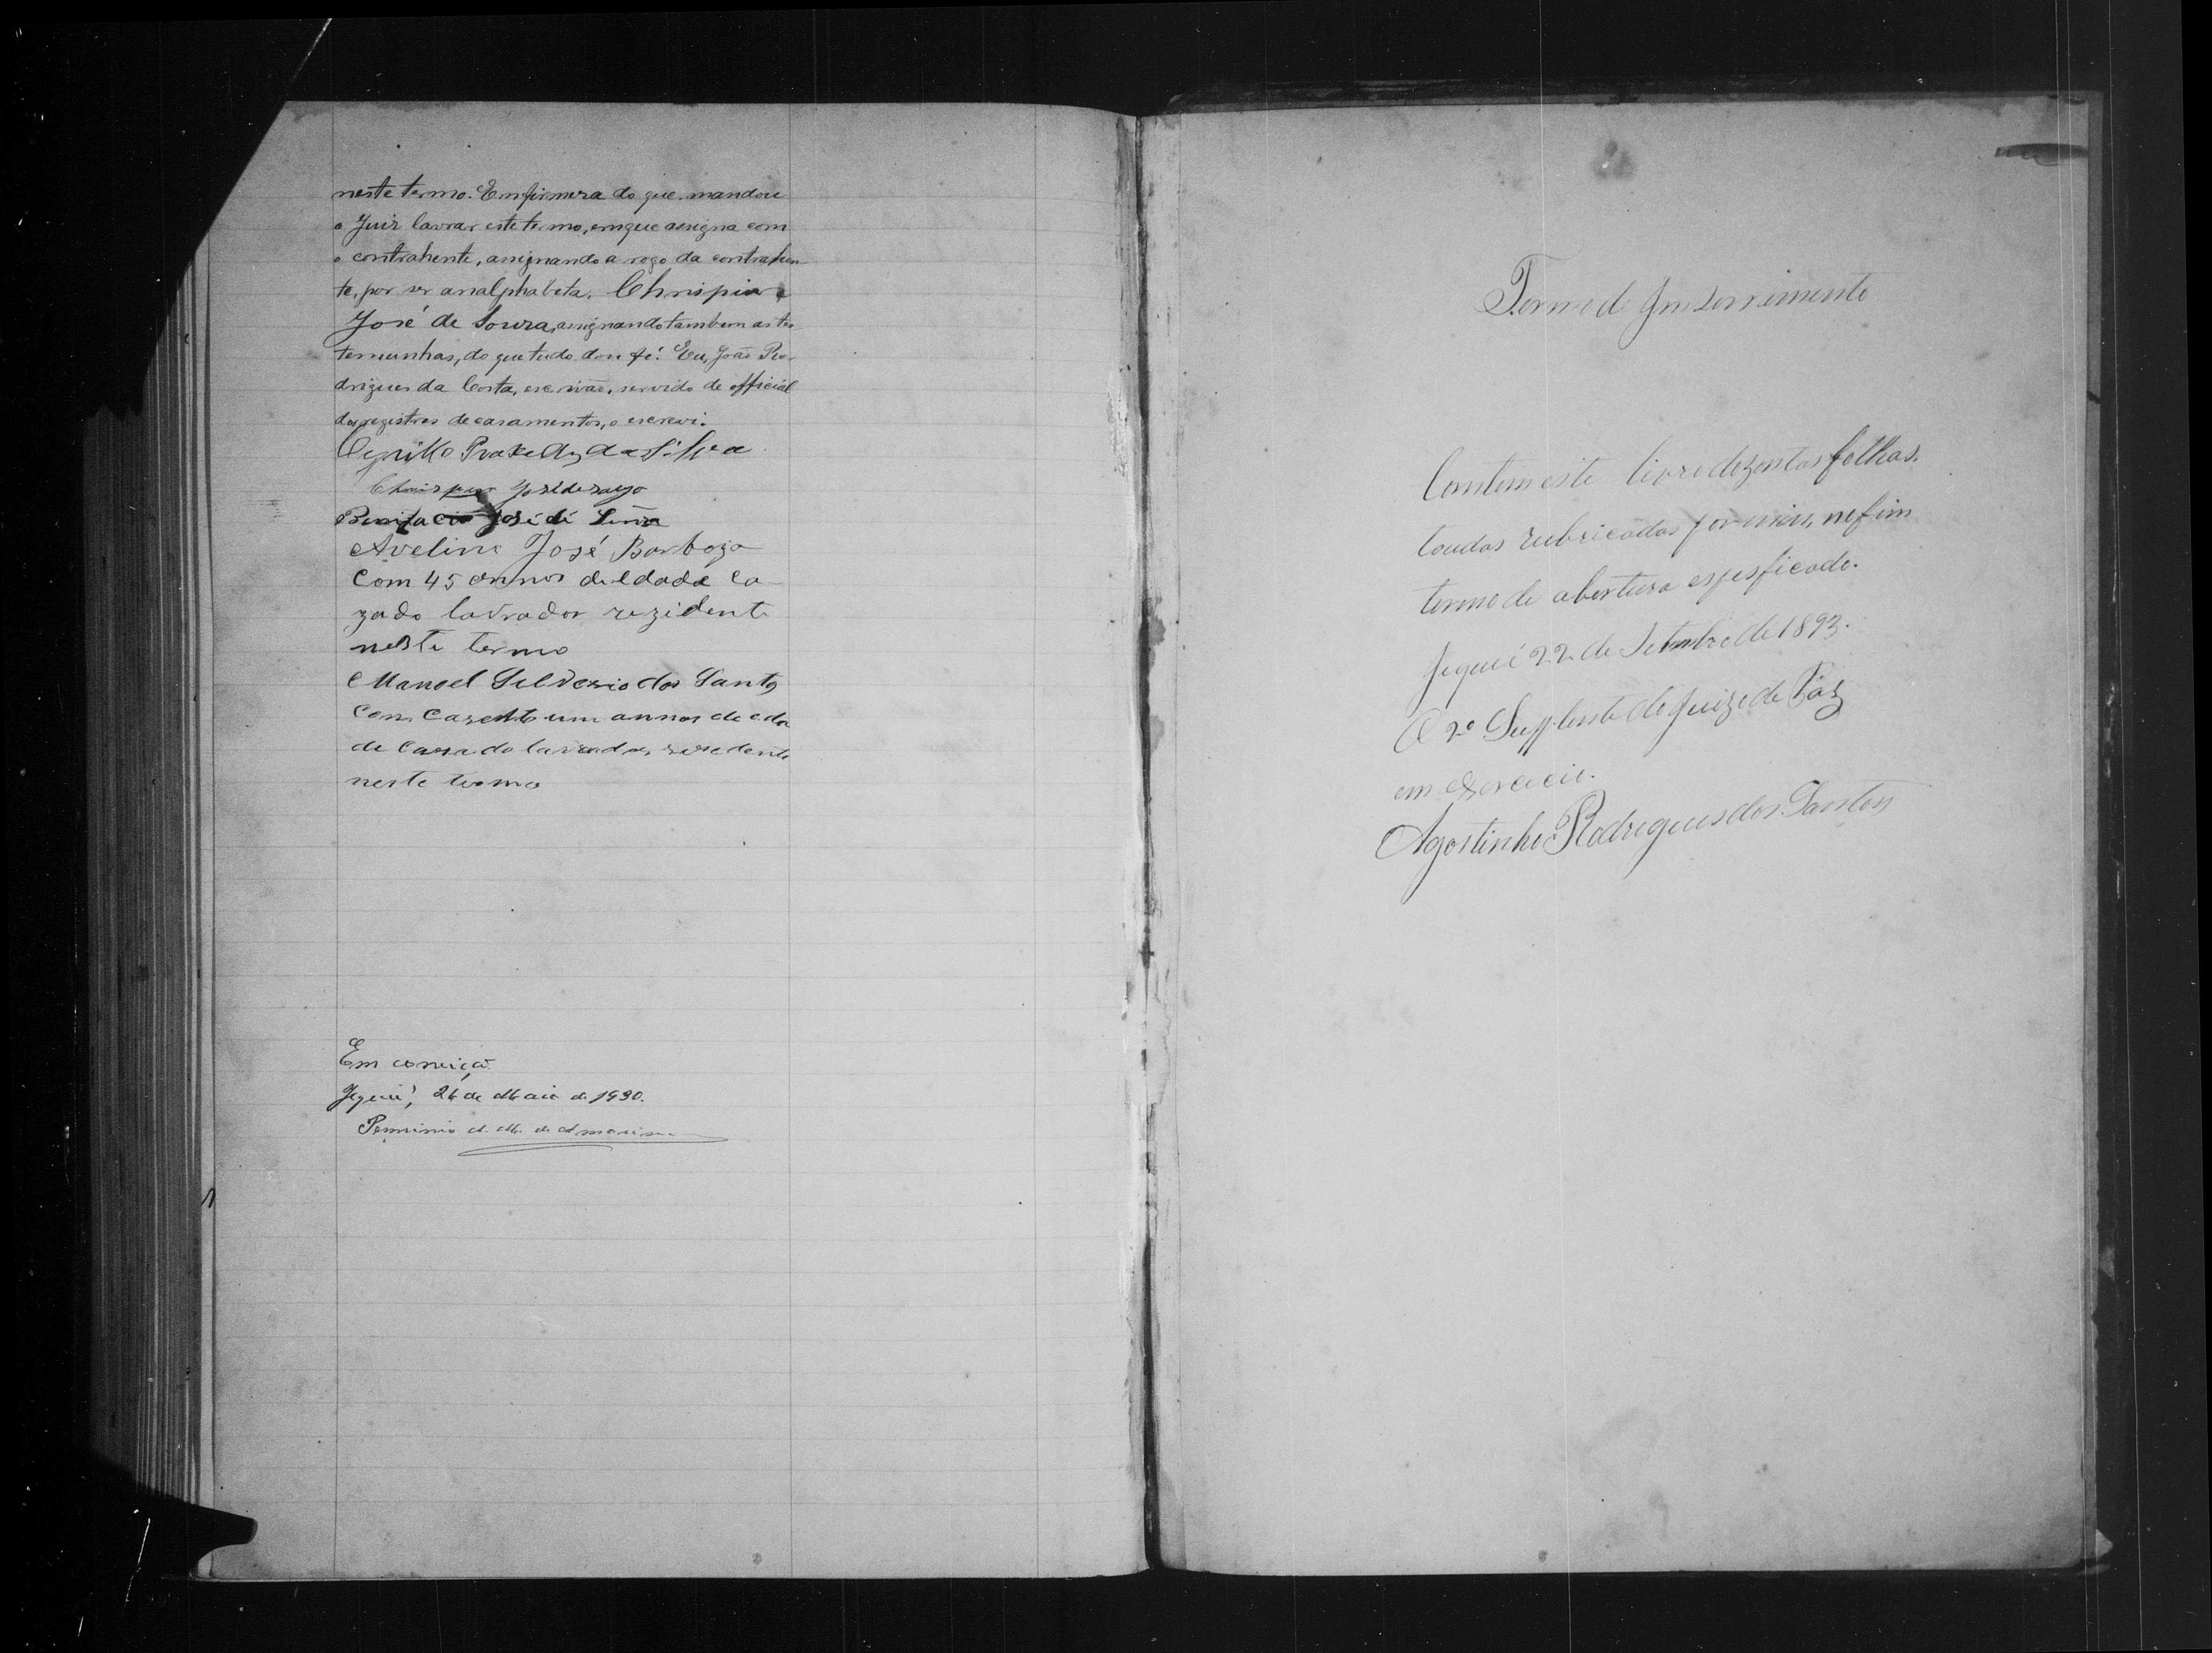 neste termo. Em firmeza do que mandou
o Juiz lavrar este termo, em que assigna com
o contrahente, assignando a rogo da contrahen-
te, por ser analphabeta, Chrispim
José de Souza, assignando tambem as tes
temunhas, do que tudo dou fé. Eu, João Ro-
drigues da Costa, escrivão, servido de official
dos registros de casamentos, o escrevi.
Cyrillo da Silva
José de
Bonifacio José de
Avelino José Barboza
Com 45 annos de Edade Ca
zado lavrador rezidente
neste termo
Manoel Silverio dos Santos
Com um annos de eda
de Casado lavrador residente
neste termo
Em correição
Jequié, 26 de Maio de 1930.
de Amorim
Termo de Inserrimento
Contem este livro dozentas folhas,
toudas rubricadas por mim, no fim
termo de abertura espesficado.
Jequié 22 de Setembro de 1893.
O 2º Supplente do Juize de Paz
em exercicio.
Agostinho Rodrigues dos Santos